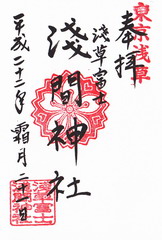 東京浅草
奉拝
浅草富士
浅間神社
平成二十二年霜月二十一日
浅草富士
浅間神社